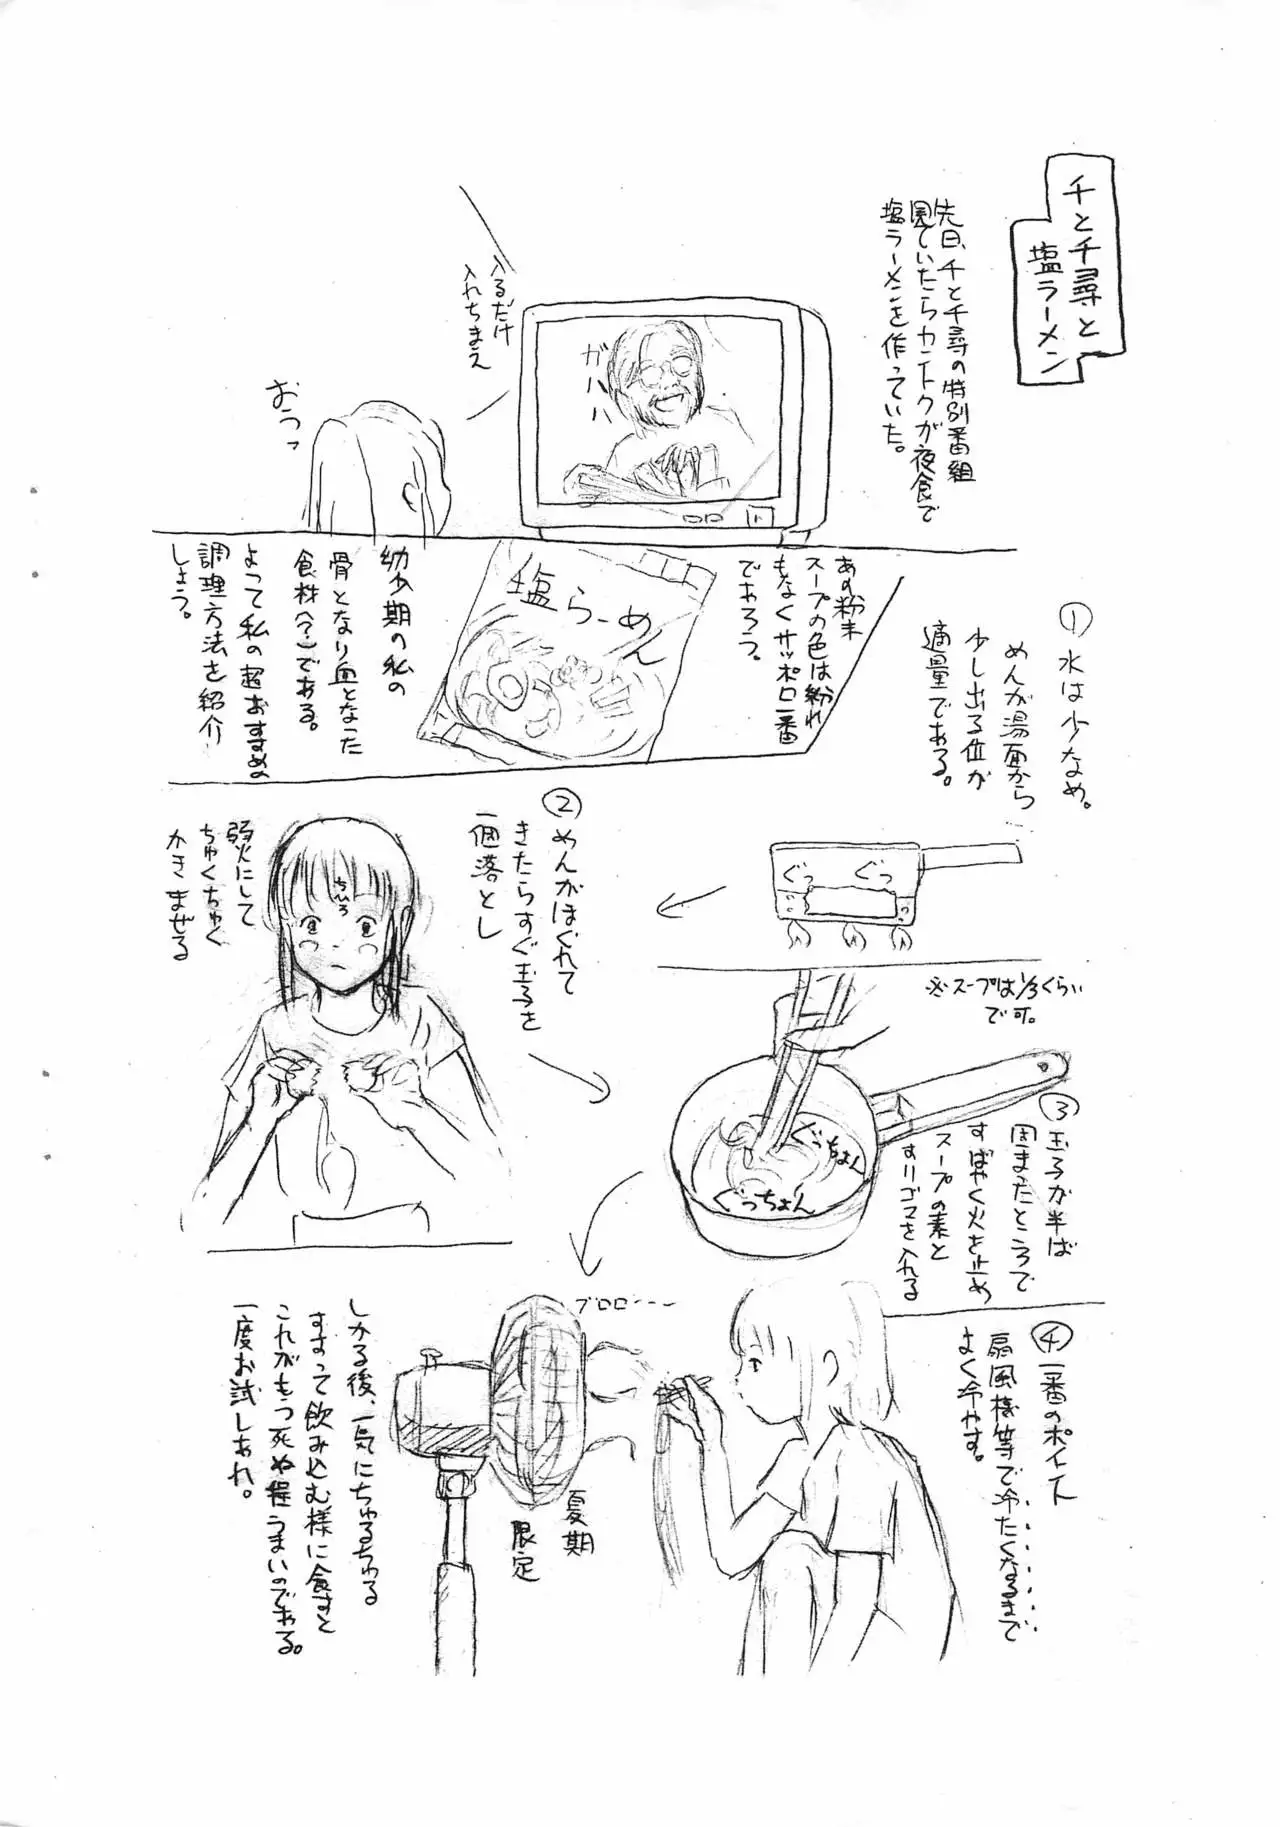 千と千尋と
塩ラーメン
先日、千と千尋の特別番組
見ていたらカントクが夜食で
塩ラーメンを作っていた。
ガハハハ
入るだけ
入れちまえ
おうっ
あの粉末
スープの色は紛れ
もなくサッポロ一番
であろう。
塩らーめん
幼少期の私の
骨となり血となった
食材(?)である。
よって私の超おすすめの
調理方法を紹介
しよう。
①水は少なめ。
めんが湯面から
少し出る位が
適量である。
ぐつ
ぐつ
②めんがほぐれて
きたらすぐ玉子を
一個落とし
ちひろ
弱火にして
ちゅくちゅく
かきまぜる
※スープは1/3くらい
で可。
ぐっちょん
ぐっちょん
③玉子が半ば
固まったところで
すばやく火を止め
スープの素と
すりゴマを入れる
④一番のポイント
扇風機等で冷たくなるまで
よく冷やす。
ブロロ・・ーー
夏期
限定
しかる後、一気にちゅるちゅる
すすって飲み込む様に食すと
これがもう死ぬ程うまいのである。
一度お試しあれ。